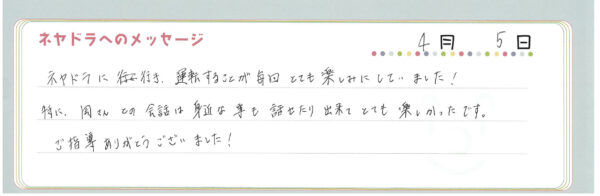 ネヤドラへのメッセージ
4月 5日
ネヤドラに行き、運転することが毎回とても楽しみにしていました!
特に、岡さんとの会話は身近な事も話せたり出来てとても楽しかったです。
ご指導ありがとうございました!